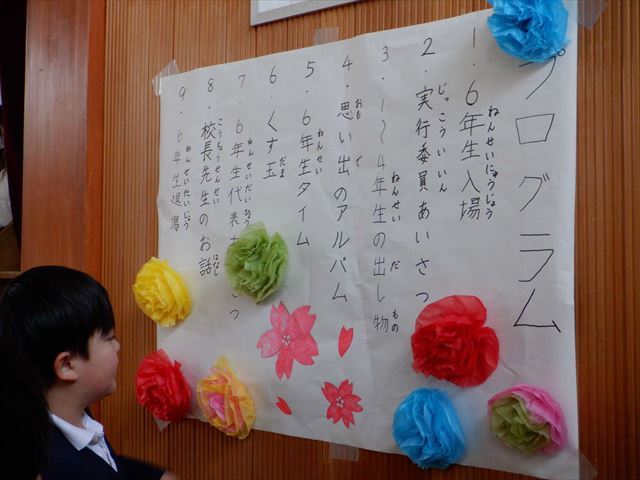 プログラム
1．6年生入場
ねんせいにゅうじょう
2．実行委員あいさつ
じっこういいん
3．1～4年生の出し物
ねんせい だ もの
4．思い出のアルバム
おも で
5．6年生タイム
ねんせい
6．くす玉
だま
7．6年生代表あ つ
ねんせいだいひょう
8．校長先生のお話
こうちょうせんせい はなし
9．6年生退場
ねんせいたいじょう